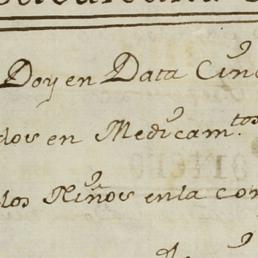 Doy en Data Cinc
dos en Medicam.tos
los Niños enla con